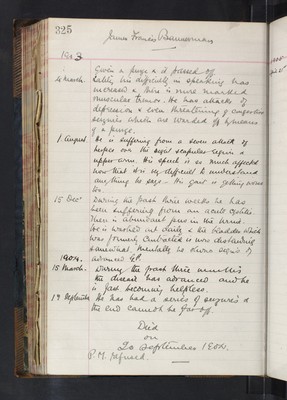 325
James Francis Bannerman
1903
Given a purge & it passed off.
4 March. Lately his difficulty in speaking has
increased & there is more marked
muscular tremor. He has attacks of
depression & even threatening of congestive
seizures which are warded off by means
of a purge.
1 August. He is suffering from a severe attack of
herpes over the right scapular region &
upper arm. His speech is so much affected
now that it is very difficult to understand
anything he says. His gait is getting worse
too.
15 Decr During the past three weeks he has
been suffering from an acute cystitis.
There is abundant pus in the urine.
He is washed out daily & the bladder which
was formerly contracted is now distending
somewhat. Mentally he shows signs of
1904. advanced G.P.
15 March. During the past three months
the disease has advanced and he
is fast becoming helpless.
17 September He has had a series of seizures &
the end cannot be far off.
Died
on
20 September 1904.
P.M. Refused.